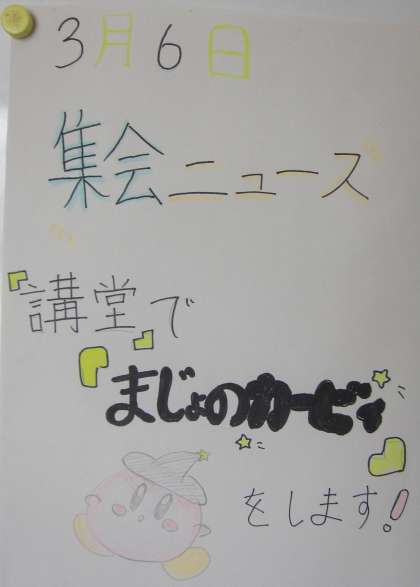 3月6日
集会ニュース
「講堂」で
「まじょのカービィ」
をします!